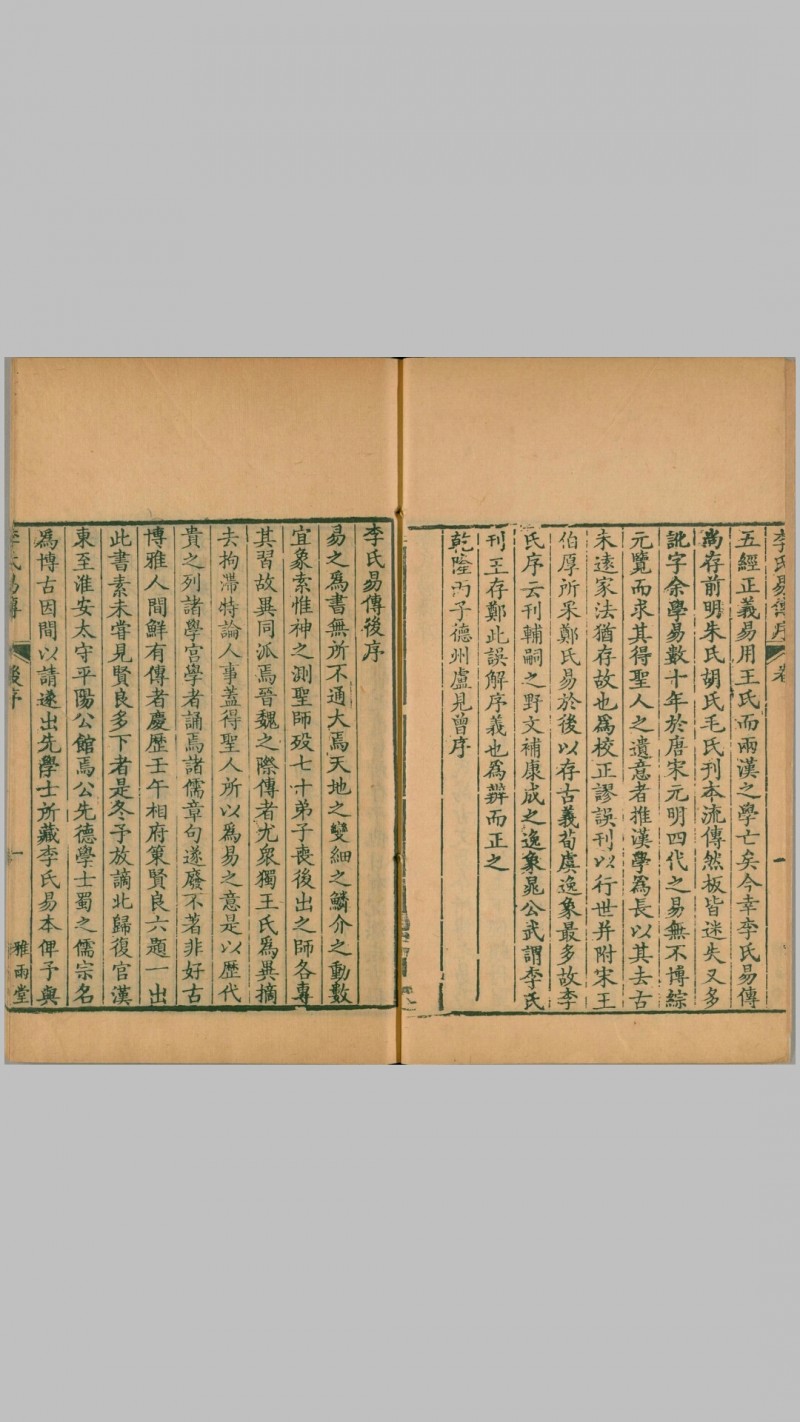 李氏易傳序
一
五經正義易用王氏而兩漢之學亡矣今幸李氏易傳
尚存前明朱氏胡氏毛氏刊本流傳然板皆迷失又多
訛字余學易數十年於唐宋元明四代之易無不博綜
元覽而求其得聖人之遺意者推漢學為長以其去古
未遠家法猶存故也為校正謬誤刊以行世并附宋王
伯厚所采鄭氏易於後以存古義荀虞逸象最多故李
氏序云刊輔嗣之野文補康成之逸象晁公武謂李氏
刊王存鄭此誤解序義也為辨而正之
乾隆丙子德州盧見曾序
李氏易傳後序
易之為書無所不通大焉天地之變細之鱗介之動數
宜象索惟神之測聖師歿七十弟子喪後出之師各專
其習故異同派焉晉魏之際傳者尤衆獨王氏為異摘
去拘滯特論人事蓋得聖人所以為易之意是以歷代
貴之列諸學宮學者誦焉諸儒章句遂廢不著非好古
博雅人間鮮有傳者慶歷壬午相府策賢良六題一出
此書素未嘗見賢良多下者是冬予放謫北歸復官漢
東至淮安太守平陽公館焉公先德學士蜀之儒宗名
為博古因間以請遂出先學士所藏李氏易本俾予與
李氏易傳
後序
一
雅雨堂